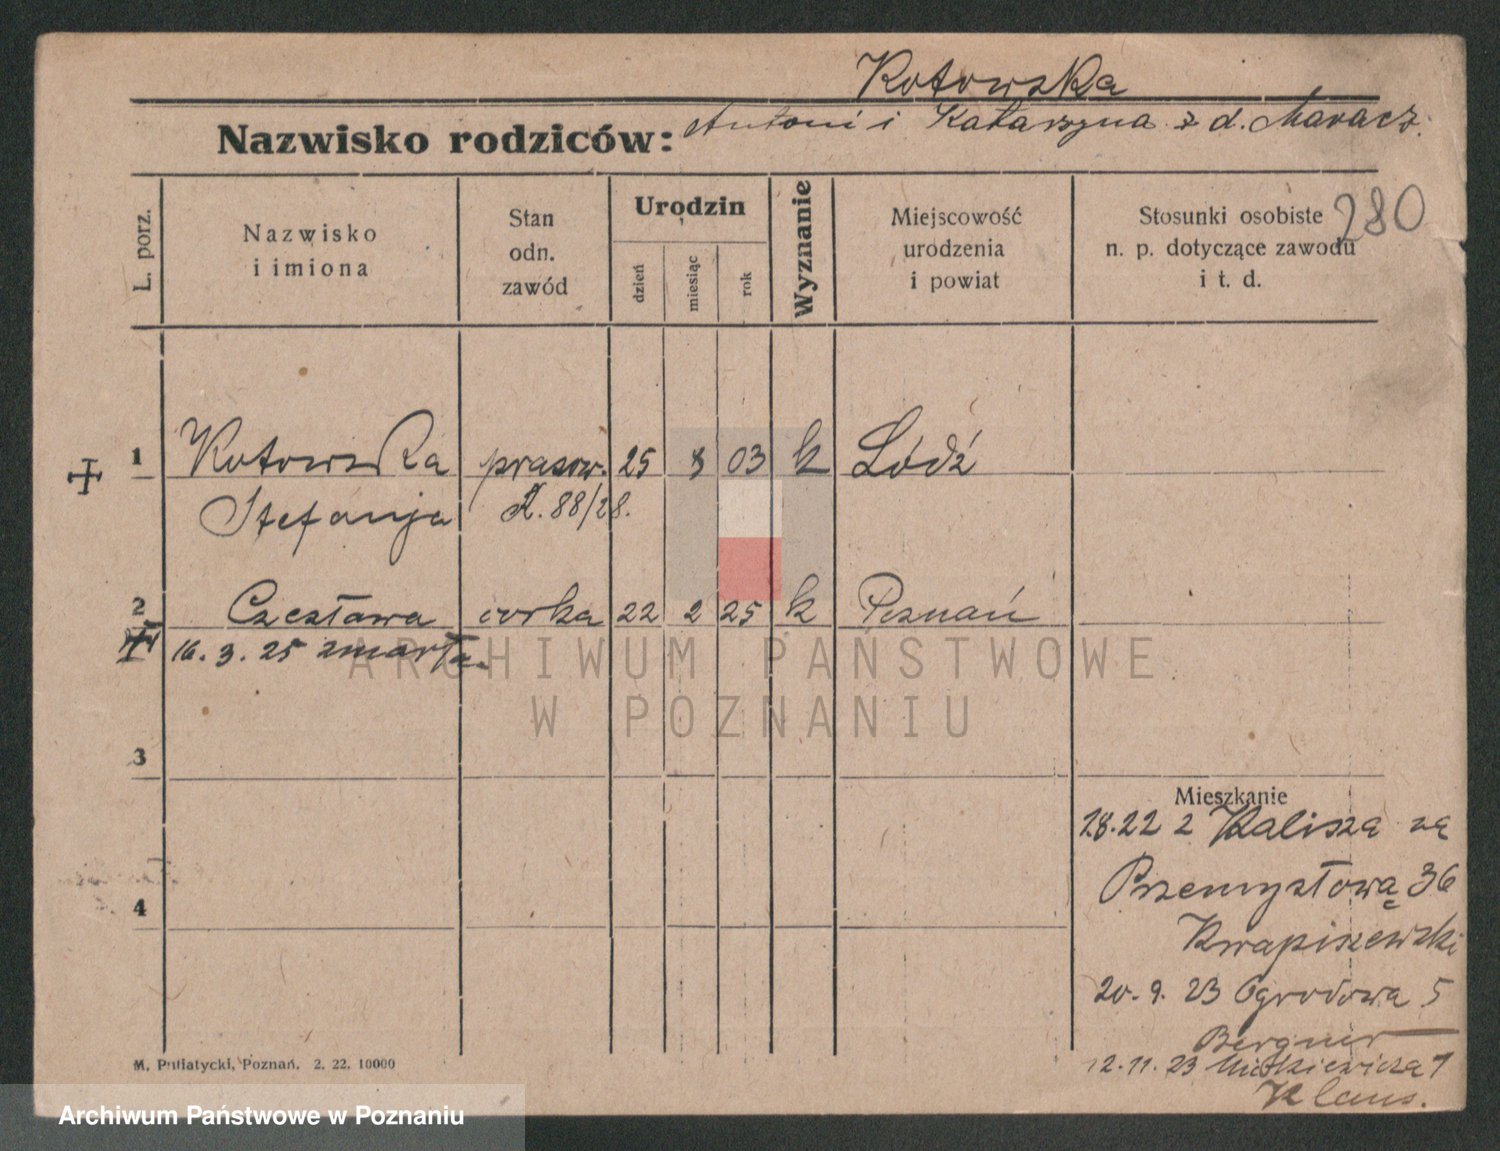 Kotowska
Nazwisko rodziców: Antoni i Katarzyna z d. Maracz.
280
L. porz.
Nazwisko
i imiona
Stan
odn.
zawód
Urodzin
dzień
miesiąc
rok
Wyznanie
Miejscowość
urodzenia
i powiat
Stosunki osobiste
n. p. dotyczące zawodu
i t. d.
1 Kotowska prasow. 25 8 03 k Łódź
Stefanja Z. 88/28.
2 Czesława córka 22 2 25 k Poznań
16. 3. 25 zmarła
ARCHIWUM PAŃSTWOWE
W POZNANIU
3
Mieszkanie
1.8.22 z Kalisza na
Przemysłową 36
4
Kwapiszewski
20. 9. 23 Ogrodowa 5
Bergner
12. 11. 23 7
Klaus.
M. Putiatycki, Poznań. 2. 22. 10000
Archiwum Państwowe w Poznaniu